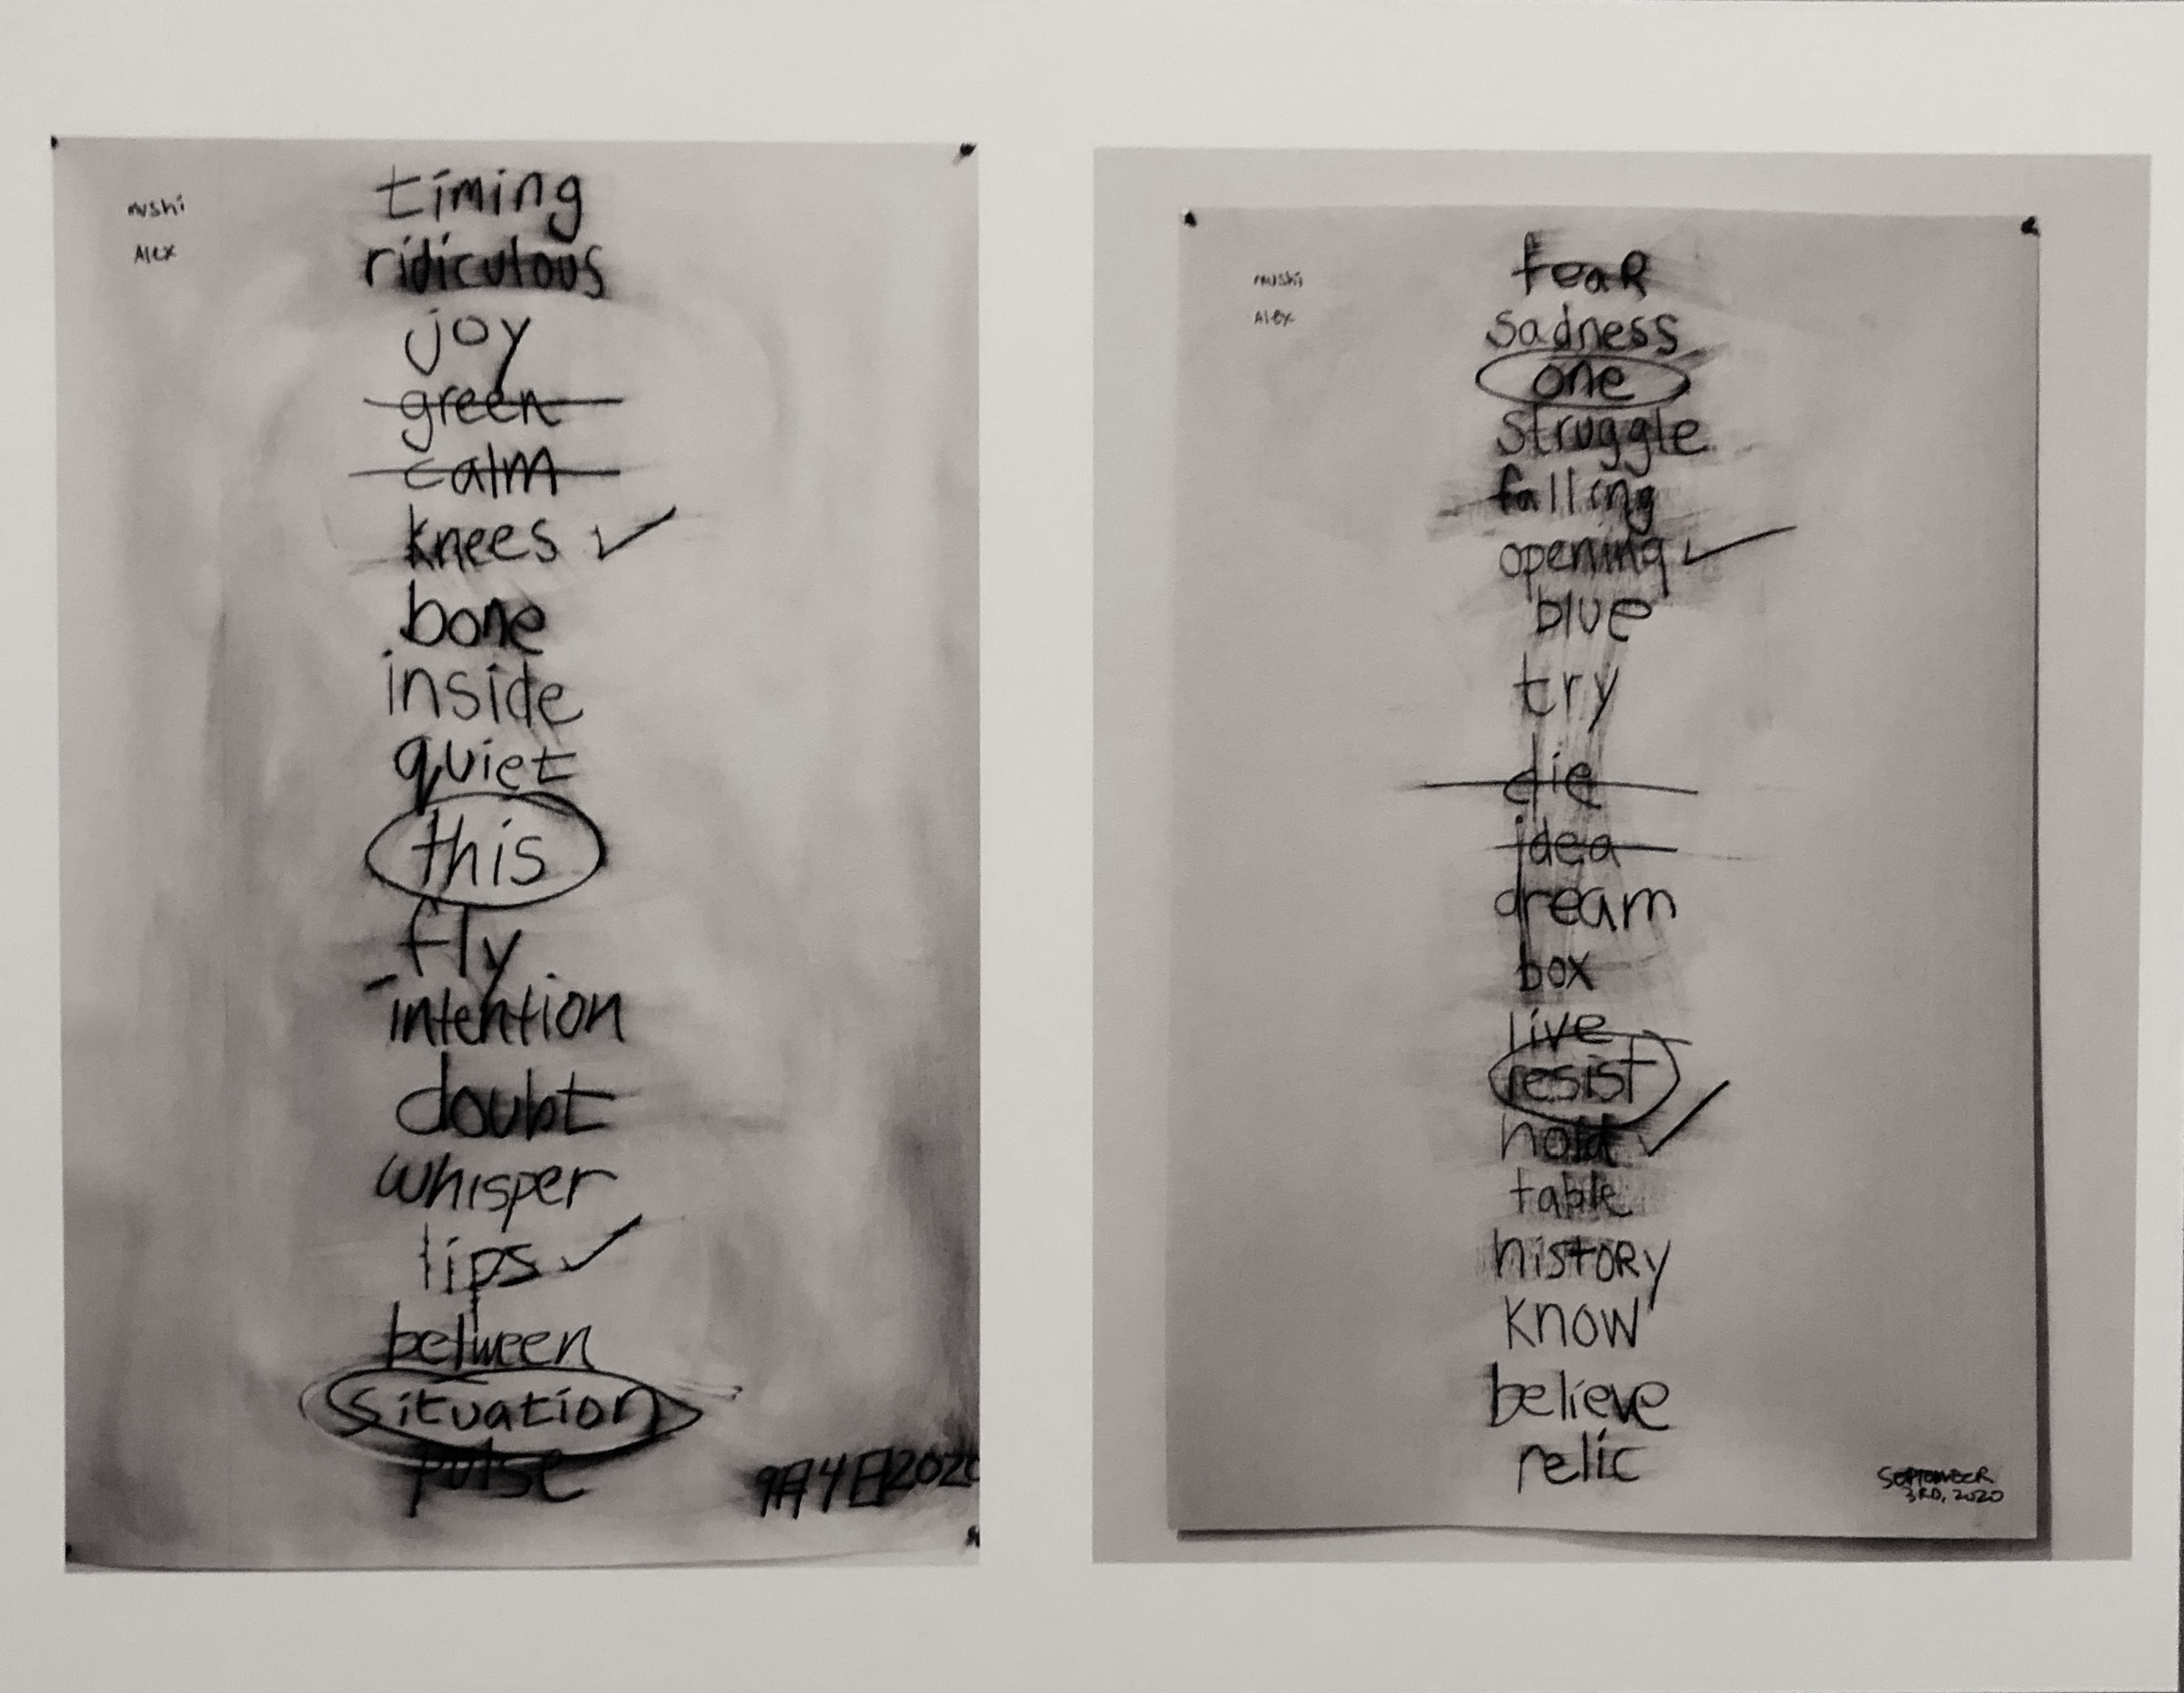 mushi
Alex
timing
ridiculous
joy
green
calm
knees ✓
bone
inside
quiet
this
fly
intention
doubt
whisper
lips ✓
between
situation
pulse
9月4日2020
mushi
Alex
feaR
sadness
one
struggle
falling
opening ✓
blue
try
die
idea
dream
box
live
resist
hold ✓
table
histoRy
know
believe
relic
SEPTEMBER
3RD, 2020